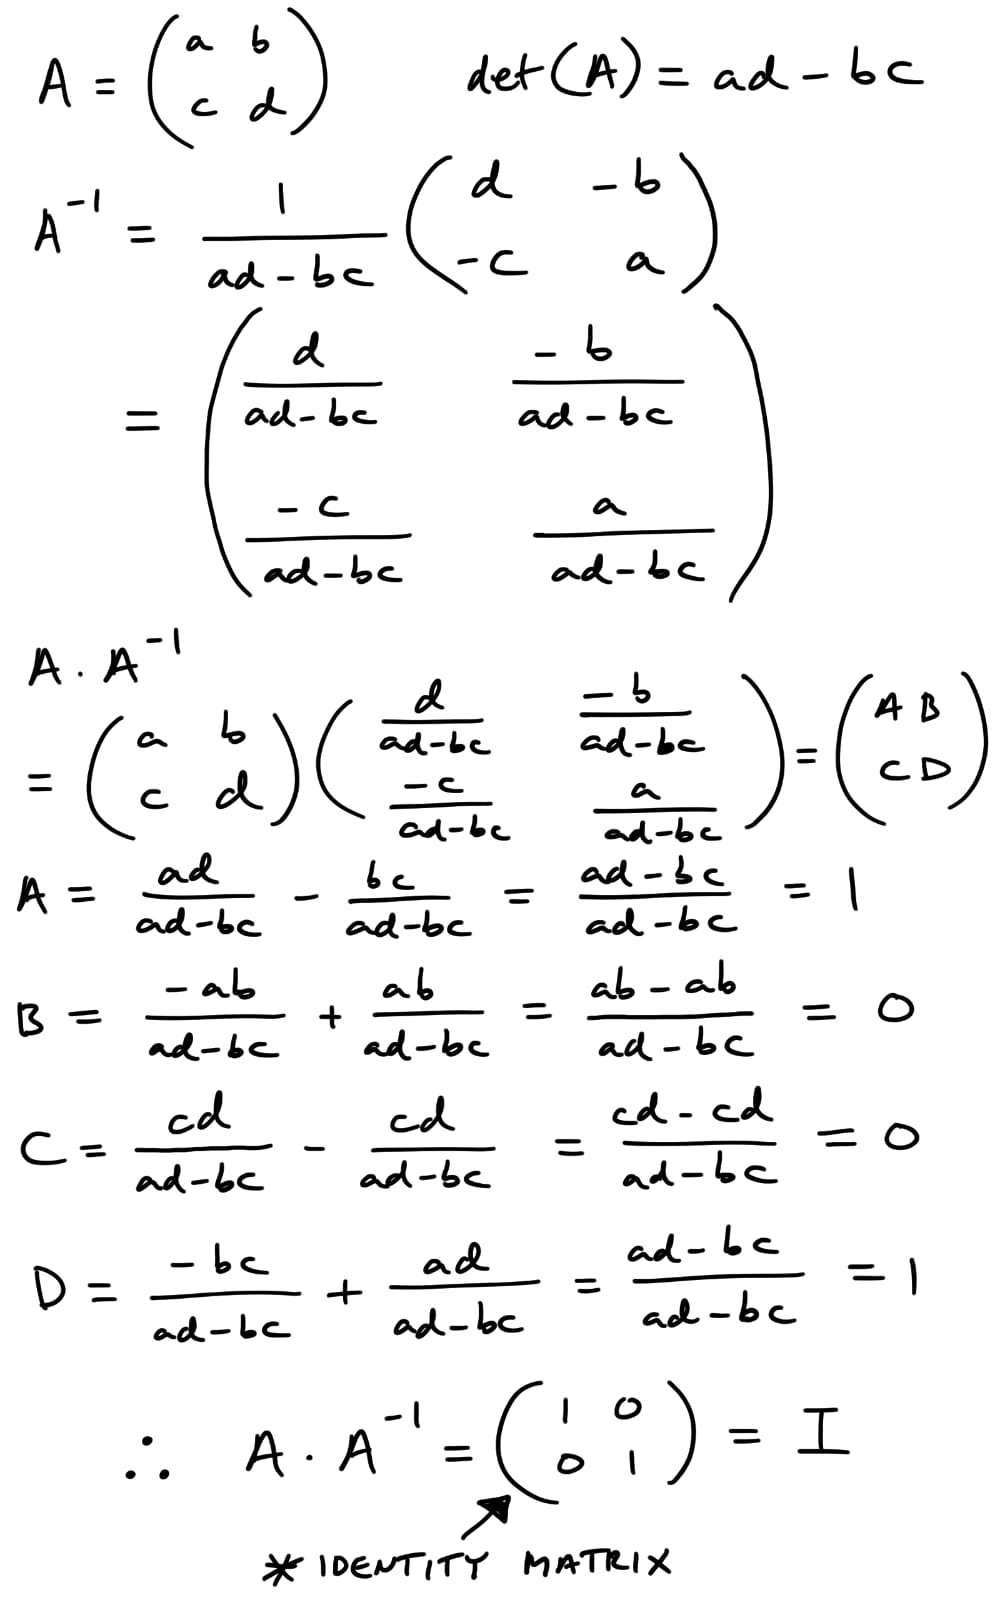 A = (a b; c d)    det(A) = ad - bc
A⁻¹ = 1/(ad - bc) (d -b; -c a)
= (d/(ad-bc) -b/(ad-bc); -c/(ad-bc) a/(ad-bc))
A . A⁻¹
= (a b; c d)(d/(ad-bc) -b/(ad-bc); -c/(ad-bc) a/(ad-bc)) = (A B; C D)
A = ad/(ad-bc) - bc/(ad-bc) = (ad-bc)/(ad-bc) = 1
B = -ab/(ad-bc) + ab/(ad-bc) = (ab-ab)/(ad-bc) = 0
C = cd/(ad-bc) - cd/(ad-bc) = (cd-cd)/(ad-bc) = 0
D = -bc/(ad-bc) + ad/(ad-bc) = (ad-bc)/(ad-bc) = 1
∴ A . A⁻¹ = (1 0; 0 1) = I
* IDENTITY MATRIX